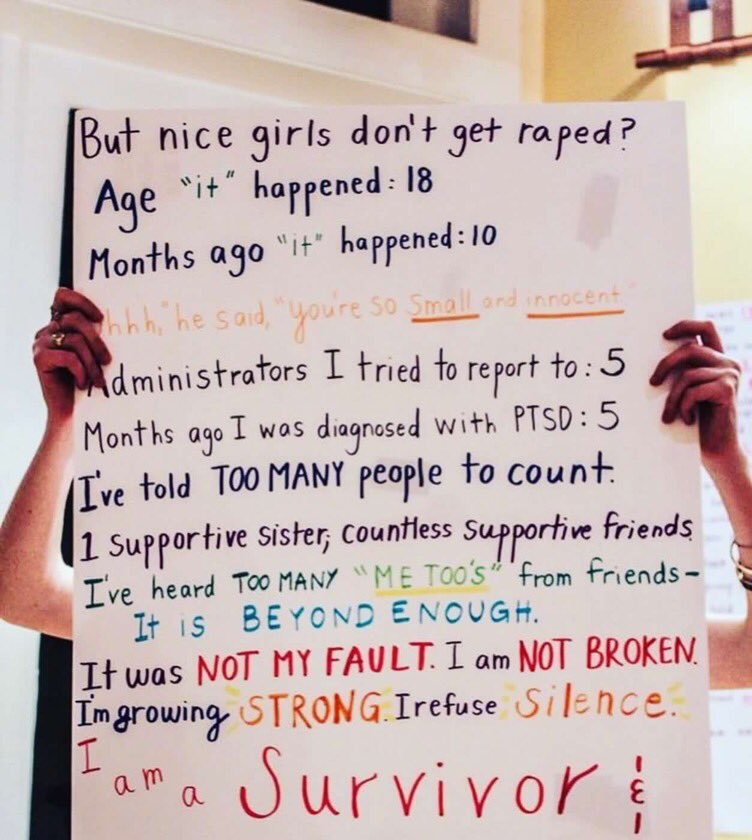 But nice girls don't get raped?
Age "it" happened: 18
Months ago "it" happened: 10
hhh," he said, "you're so small and innocent"
Administrators I tried to report to: 5
Months ago I was diagnosed with PTSD: 5
I've told TOO MANY people to count.
1 supportive sister, countless supportive friends
I've heard TOO MANY "ME TOO's" from friends-
It is BEYOND ENOUGH.
It was NOT MY FAULT. I am NOT BROKEN.
I'm growing STRONG. I refuse silence.
I am a Survivor &